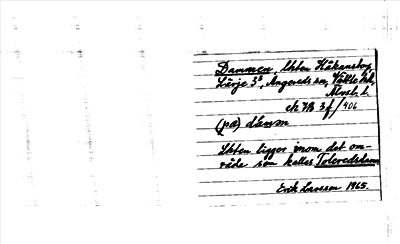 Dammen, lhten Håkanstorp,
Lärje 3⁵, Angereds sn, Vättle hd,
Älvsb. l.
ek 7B 3f/406
(på) damm
Lhten ligger inom det om-
råde som kallas Toleredsdamm
Erik Larsson 1965.